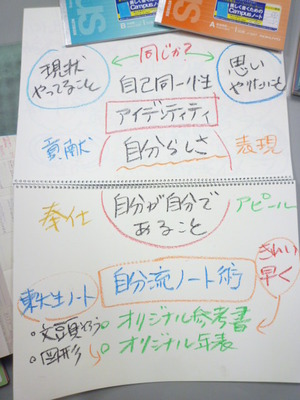 Campusノート
Campusノート
同じか?
現状
やってること
思い
やりたいこと
自己同一性
アイデンティティ
貢献
自分らしさ
表現
奉仕
自分が自分で
あること
アピール
きれい
早く
東大生ノート
自分流ノート術
文頭そろう
図形
オリジナル参考書
オリジナル年表